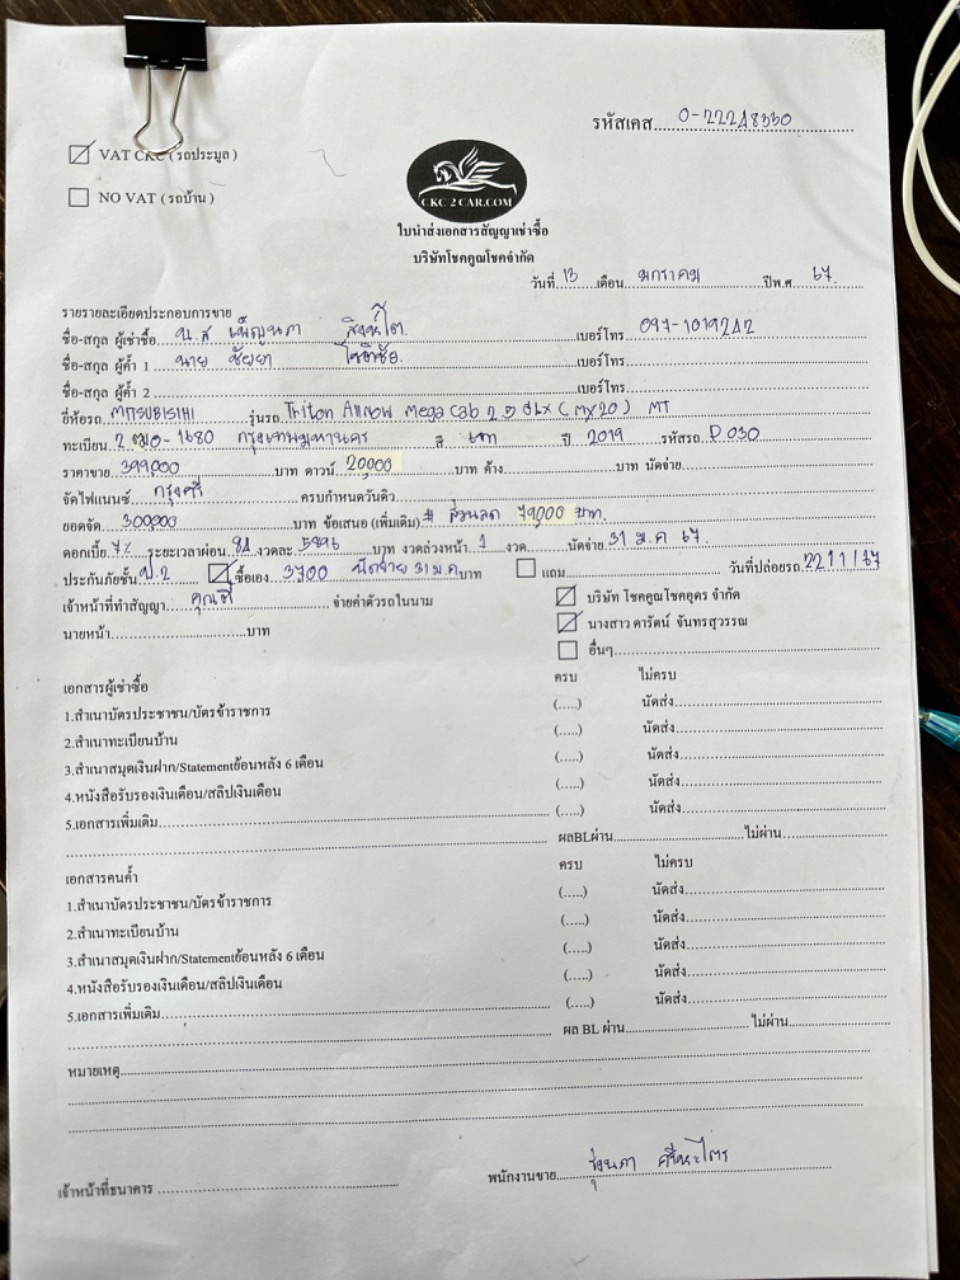 รหัสเคส....0-22248330
VAT CKC ( รถประมูล )
NO VAT ( รถบ้าน )
CKC 2 CAR.COM
ใบนำส่งเอกสารสัญญาเช่าซื้อ
บริษัทโชคคูณโชคจำกัด
วันที่ 13 เดือน มกราคม ปีพ.ศ 67
รายรายละเอียดประกอบการขาย
ชื่อ-สกุล ผู้เช่าซื้อ น.ส เพ็ญนภา สิงห์โต เบอร์โทร 097-1019242
ชื่อ-สกุล ผู้ค้ำ 1 นาย ชัยยา เบอร์โทร
ชื่อ-สกุล ผู้ค้ำ 2 เบอร์โทร
ยี่ห้อรถ MITSUBISIHI รุ่นรถ Triton Allnow Mega Cab MT
ทะเบียน 1680 กรุงเทพมหานคร สี เทา ปี 2019 รหัสรถ P.030
ราคาขาย 399,000 บาท ดาวน์ 20,000 บาท ค้าง บาท นัดจ่าย
จัดไฟแนนซ์ กรุงศรี ครบกำหนดวันคิว
ยอดจัด 300,000 บาท ข้อเสนอ (เพิ่มเติม) # ส่วนลด 79,000 บาท.
ดอกเบี้ย 7% ระยะเวลาผ่อน 84 งวดละ 5896 บาท งวดล่วงหน้า 1 งวด นัดจ่าย 31 ม.ค 67.
ประกันภัยชั้น ป.2 ซื้อเอง 3700 นัดจ่าย 31 ม.ค บาท แถม วันที่ปล่อยรถ 22/1/67
เจ้าหน้าที่ทำสัญญา จ่ายค่าตัวรถในนาม บริษัท โชคคูณโชคอุดร จำกัด
นายหน้า บาท นางสาว ดารัตน์ จันทรสุวรรณ
อื่นๆ
เอกสารผู้เช่าซื้อ ครบ ไม่ครบ
1.สำเนาบัตรประชาชน/บัตรข้าราชการ (.....) นัดส่ง
2.สำเนาทะเบียนบ้าน (.....) นัดส่ง
3.สำเนาสมุดเงินฝาก/Statementย้อนหลัง 6 เดือน (.....) นัดส่ง
4.หนังสือรับรองเงินเดือน/สลิปเงินเดือน (.....) นัดส่ง
5.เอกสารเพิ่มเติม (.....) นัดส่ง
ผลBLผ่าน ไม่ผ่าน
เอกสารคนค้ำ ครบ ไม่ครบ
1.สำเนาบัตรประชาชน/บัตรข้าราชการ (.....) นัดส่ง
2.สำเนาทะเบียนบ้าน (.....) นัดส่ง
3.สำเนาสมุดเงินฝาก/Statementย้อนหลัง 6 เดือน (.....) นัดส่ง
4.หนังสือรับรองเงินเดือน/สลิปเงินเดือน (.....) นัดส่ง
5.เอกสารเพิ่มเติม (.....) นัดส่ง
ผล BL ผ่าน ไม่ผ่าน
หมายเหตุ
เจ้าหน้าที่ธนาคาร พนักงานขาย รุ่งนภา